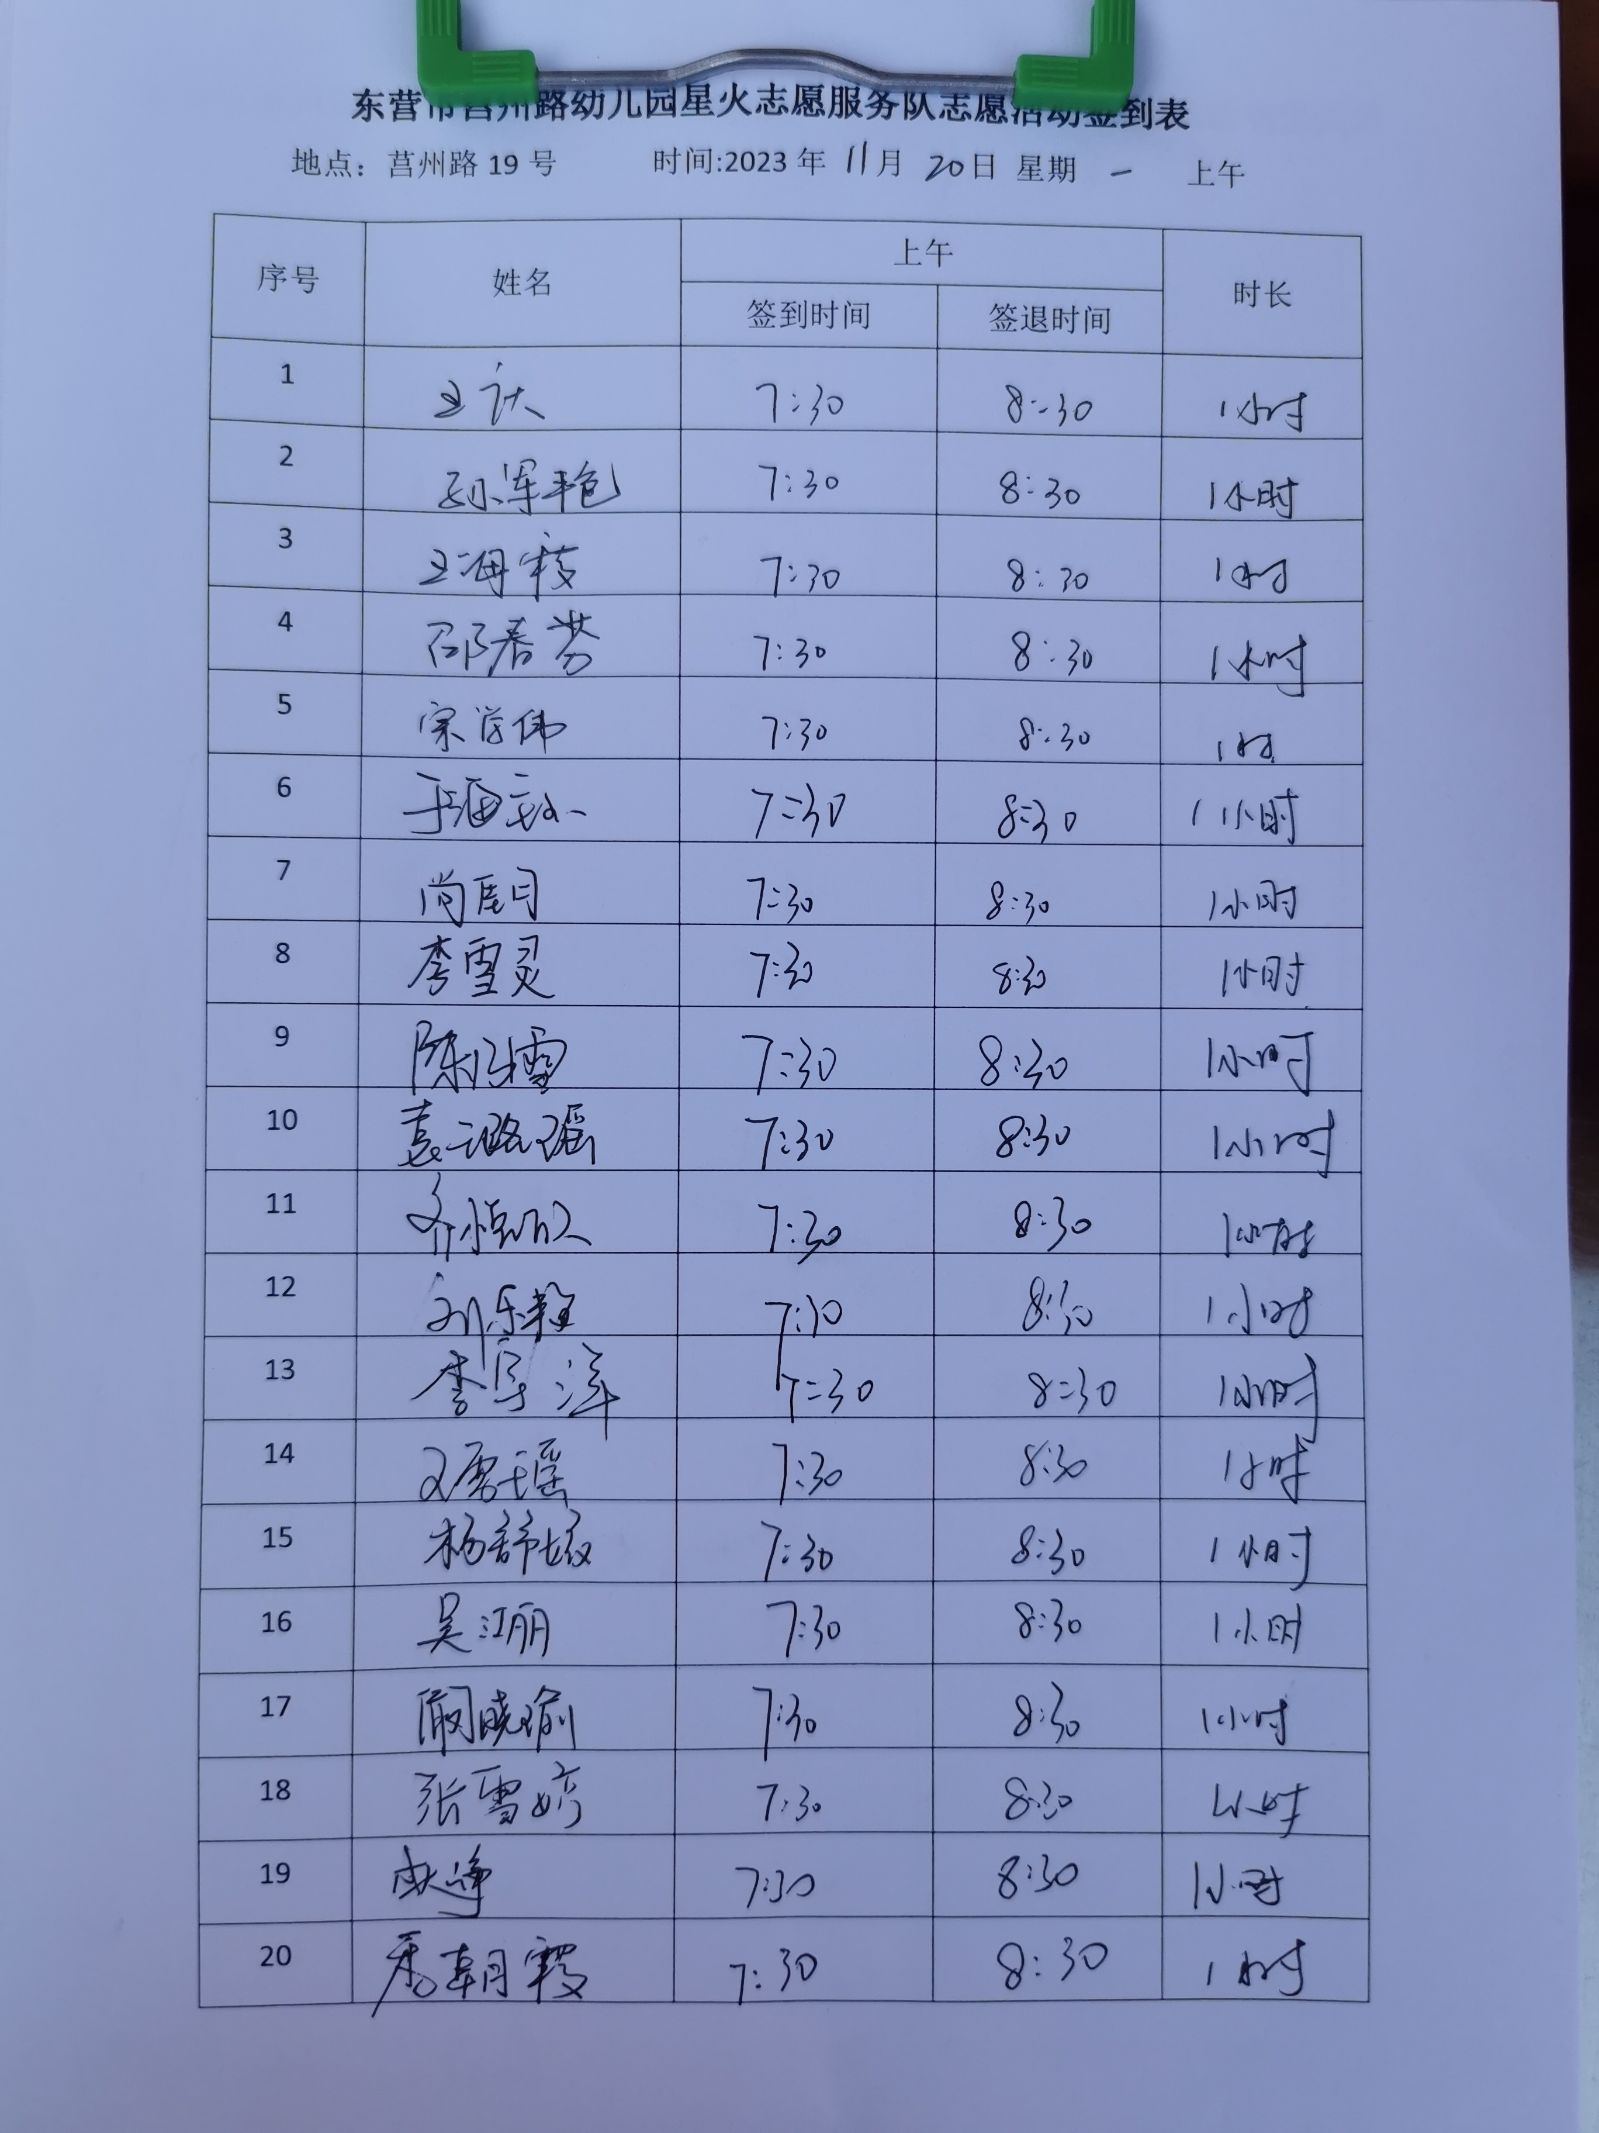 东营市莒州路幼儿园星火志愿服务队志愿活动签到表
地点：莒州路 19 号 时间:2023 年 11月 20日 星期 一 上午
序号 姓名 上午 时长
签到时间 签退时间
1 7:30 8:30 1小时
2 孙军艳 7:30 8:30 1小时
3 王海霞 7:30 8:30 1小时
4 邵春芬 7:30 8:30 1小时
5 宗学伟 7:30 8:30 1时
6 7:30 8:30 1小时
7 尚月 7:30 8:30 1小时
8 李雪灵 7:30 8:30 1小时
9 陈雪 7:30 8:30 1小时
10 袁璐瑶 7:30 8:30 1小时
11 7:30 8:30 1小时
12 刘乐 7:30 8:30 1小时
13 李宇洋 7:30 8:30 1小时
14 瑶 7:30 8:30 1小时
15 杨舒 7:30 8:30 1小时
16 吴江丽 7:30 8:30 1小时
17 阚晓瑜 7:30 8:30 1小时
18 张雪婷 7:30 8:30 1小时
19 7:30 8:30 1小时
20 朝霞 7:30 8:30 1小时